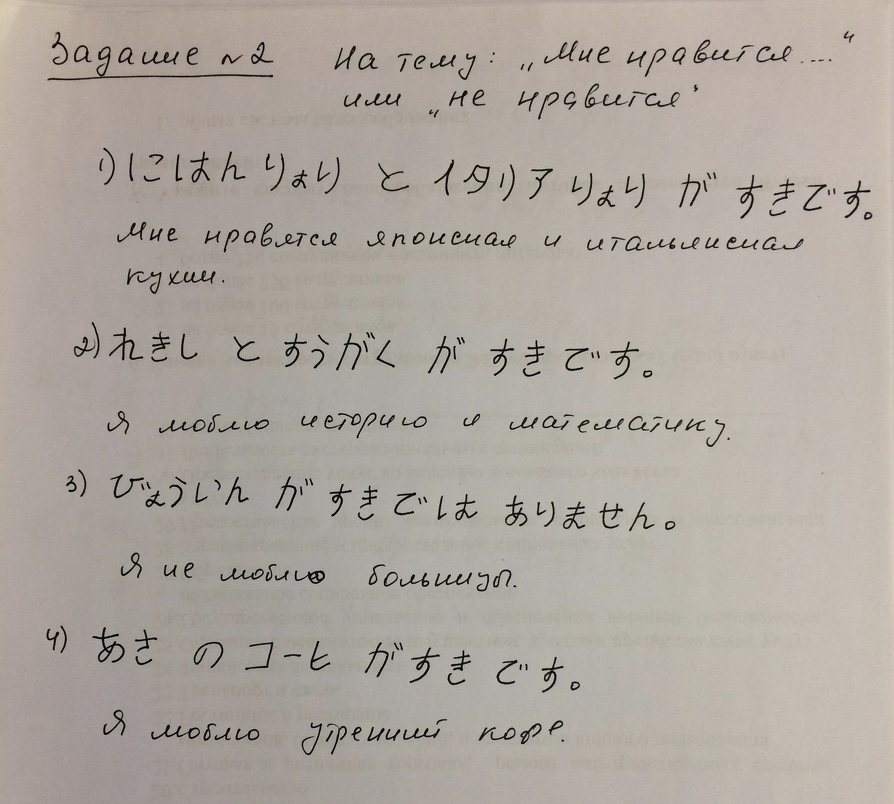 Задание №2 На тему: „Мне нравится...."
или „не нравится"
1) にほんりょり と イタリアりょり が すきです。
Мне нравятся японская и итальянская
кухни.
2) れきし と すうがく が すきです。
Я люблю историю и математику.
3) びょういん が すきではありません。
Я не люблю больницы.
4) あさ の コーヒ が すき です。
Я люблю утренний кофе.